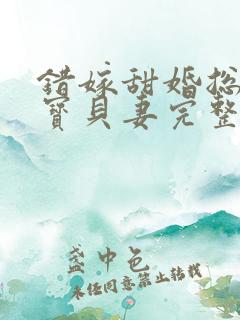 错嫁甜婚总
宝贝妻完整
盏中色
未经同意禁止转载